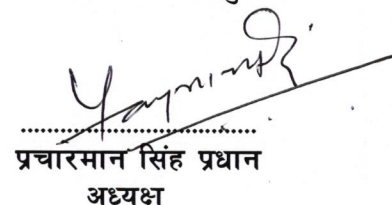 ..........................................
प्रचारमान सिंह प्रधान
अध्यक्ष